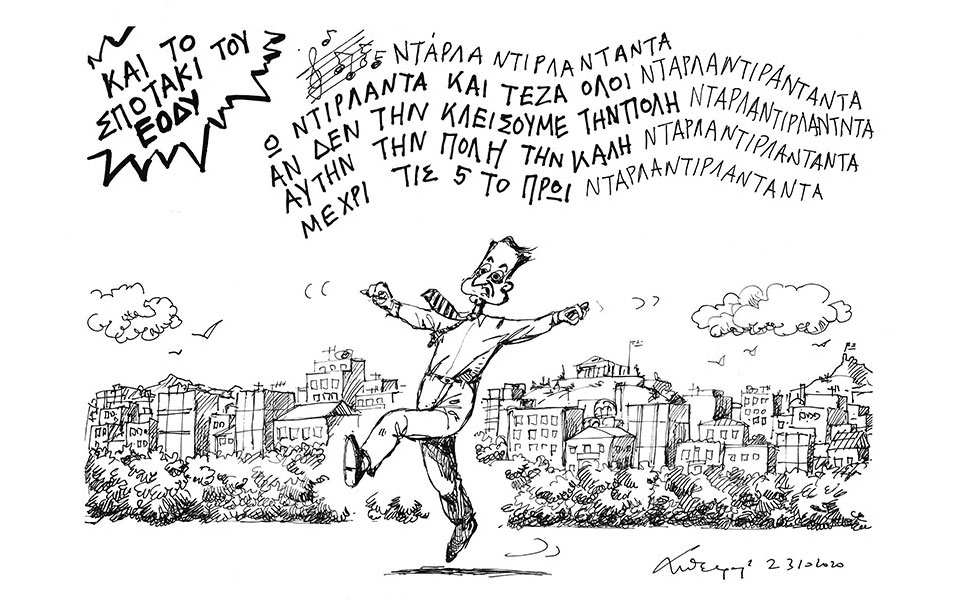 ΚΑΙ ΤΟ
ΣΠΟΤΑΚΙ ΤΟΥ
ΕΟΔΥ
ΝΤΑΡΛΑ ΝΤΙΡΛΑΝΤΑΝΤΑ
Ω ΝΤΙΡΛΑΝΤΑ ΚΑΙ ΤΕΖΑ ΟΛΟΙ ΝΤΑΡΛΑΝΤΙΡΑΝΤΑΝΤΑ
ΑΝ ΔΕΝ ΤΗΝ ΚΛΕΙΣΟΥΜΕ ΤΗΝ ΠΟΛΗ ΝΤΑΡΛΑΝΤΙΡΛΑΝΤΝΤΑ
ΑΥΤΗΝ ΤΗΝ ΠΟΛΗ ΤΗΝ ΚΑΛΗ ΝΤΑΡΛΑΝΤΙΡΛΑΝΤΑΝΤΑ
ΜΕΧΡΙ ΤΙΣ 5 ΤΟ ΠΡΩΙ ΝΤΑΡΛΑΝΤΙΡΛΑΝΤΑΝΤΑ
23102020